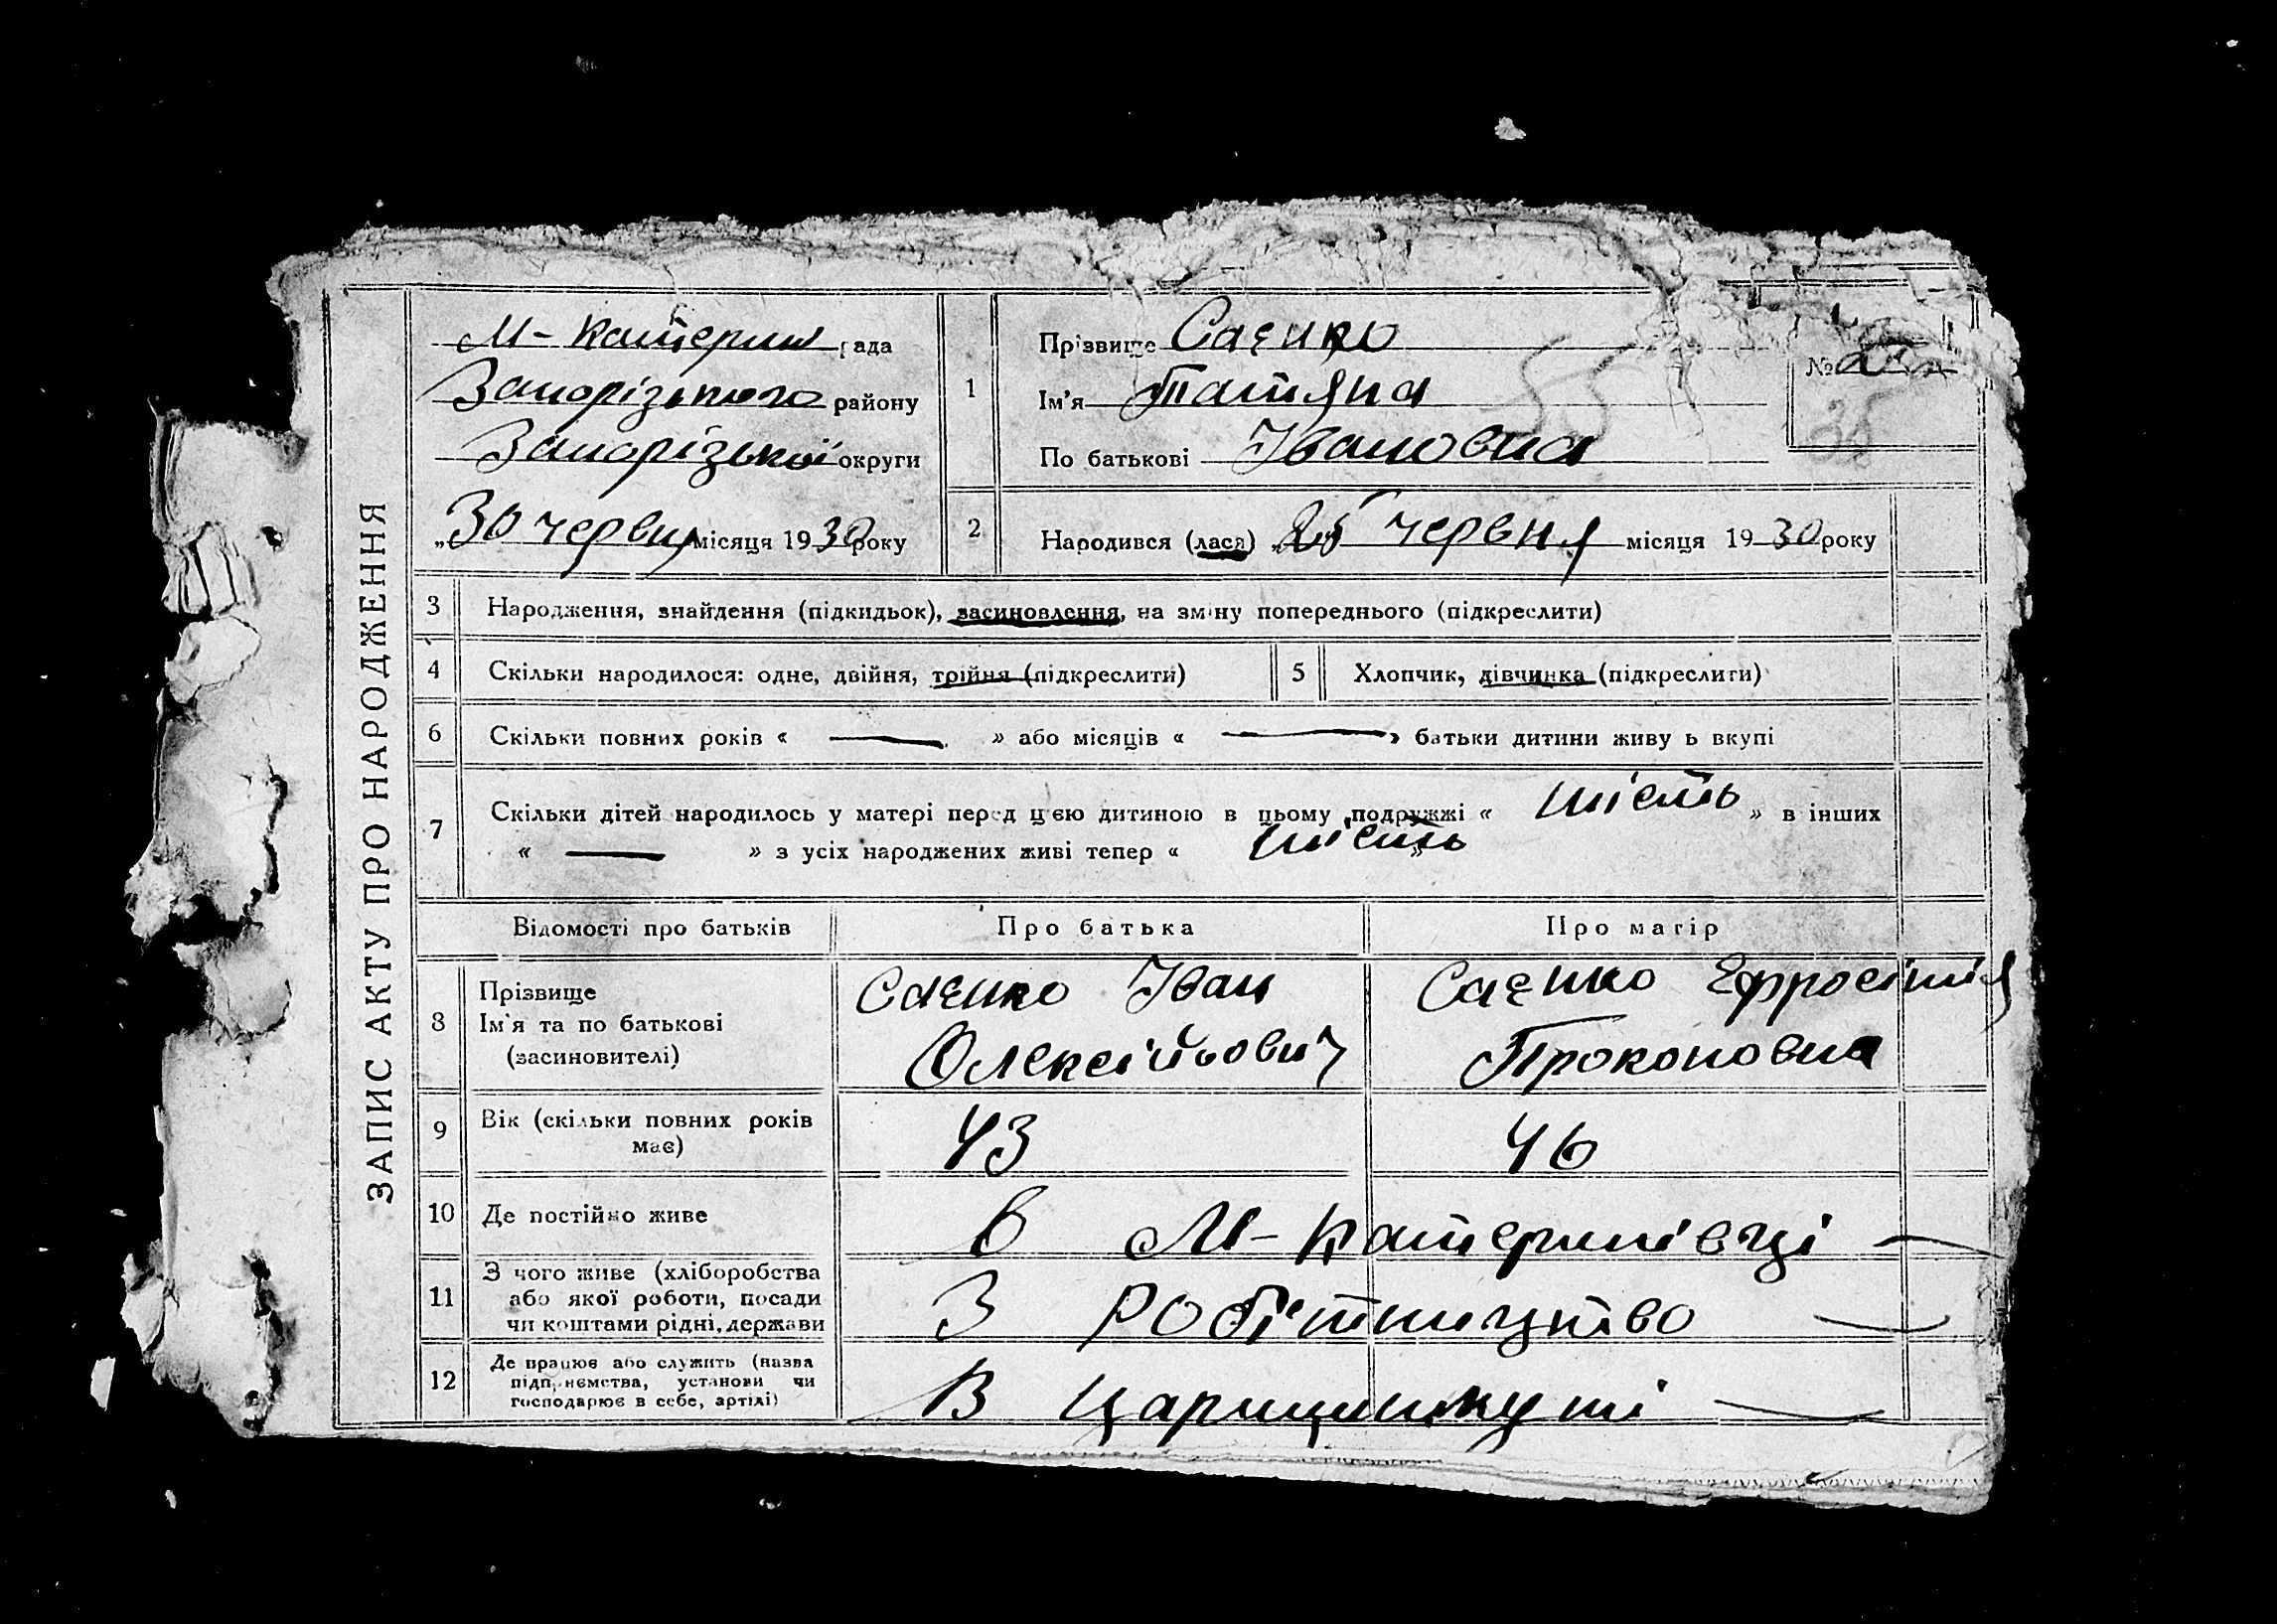 ЗАПИС АКТУ ПРО НАРОДЖЕННЯ
М-Катерин рада
Запорізького району
Запорізької округи
„30 червня місяця 1930 року
1
Прізвище Саєнко
Ім'я Татяна
По батькові Івановна
№
35
2
Народився (лася) „25 червня місяця 1930 року
3 Народження, знайдення (підкидьок), засиновлення, на зміну попереднього (підкреслити)
4 Скільки народилося: одне, двійня, трійня (підкреслити) 5 Хлопчик, дівчинка (підкреслити)
6 Скільки повних років « — » або місяців « — » батьки дитини живуть вкупі
7 Скільки дітей народилось у матері перед цією дитиною в цьому подружжі « шість » в інших
« — » з усіх народжених живі тепер « шість »
Відомості про батьків Про батька Про матір
8 Прізвище
Ім'я та по батькові
(засиновителі)
Саєнко Іван
Олексійович
Саєнко Ефросінія
Прокоповна
9 Вік (скільки повних років
має)
43 46
10 Де постійно живе в М-Катеринівці —
11 З чого живе (хліборобства
або якої роботи, посади
чи коштами рідні, держави
З робітництво —
12 Де працює або служить (назва
підприємства, установи чи
господарює в себе, артілі)
В